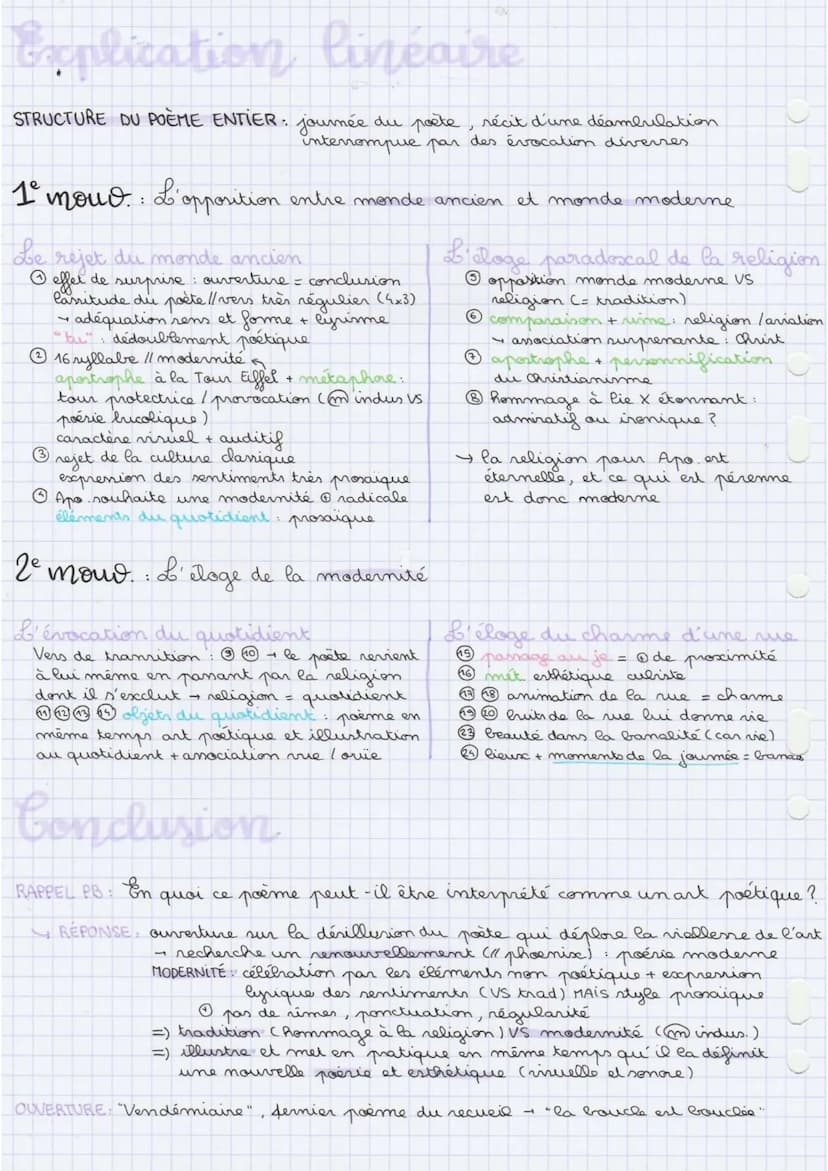 Explication linéaire
STRUCTURE DU POÈME ENTIER : journée du poète, récit d'une déambulation
interrompue par des évocation diverses
1e mouv. : L'opposition entre monde ancien et monde moderne
Le rejet du monde ancien
① effet de surprise : ouverture = conclusion
lassitude du poète // vers très régulier (4x3)
→ adéquation sens et forme + lyrisme
"tu" : dédoublement poétique
② 16 syllabe // modernité
apostrophe à la Tour Eiffel + métaphore :
tour protectrice / provocation (m indus VS
poésie bucolique)
caractère visuel + auditif
③ rejet de la culture classique
expression des sentiments très prosaïque
④ Apo. souhaite une modernité ⊕ radicale
éléments du quotidient : prosaïque
L'éloge paradoxal de la religion
⑤ opposition monde moderne VS
religion (= tradition)
⑥ comparaison + rime : religion / aviation
↳ association surprenante : Christ
⑦ apostrophe + personnification
du Christianisme
⑧ Hommage à Pie X étonnant :
admiratif ou ironique ?
→ la religion pour Apo. est
éternelle, et ce qui est pérenne
est donc moderne
2e mouv. : L'éloge de la modernité
L'évocation du quotidient
Vers de transition : ⑨ ⑩ → le poète revient
à lui même en passant par la religion
dont il s'exclut → religion = quotidient
⑪ ⑫ ⑬ ⑭ objets du quotidient : poème en
même temps art poétique et illustration
au quotidient + association vue / ouïe
L'éloge du charme d'une rue
⑮ passage au je = ⊕ de proximité
⑯ mét esthétique cubiste
⑰ ⑱ animation de la rue = charme
⑲ ⑳ bruits de la rue lui donne vie
㉓ beauté dans la banalité (car vie)
㉔ lieux + moments de la journée = banas
Conclusion
RAPPEL PB : En quoi ce poème peut-il être interprété comme un art poétique ?
↳ RÉPONSE : ouverture sur la désillusion du poète qui déplore la viellesse de l'art
→ recherche un renouvellement (// phoenix) : poésie moderne
MODERNITÉ : célébration par les éléments non poétique + expression
lyrique des sentiments (VS trad) MAIS style prosaïque
⊕ pas de rimes, ponctuation, régularité
=) tradition (hommage à la religion) VS modernité (m indus.)
=) illustre et met en pratique en même temps qu'il la définit
une nouvelle poésie et esthétique (visuelle et sonore)
OUVERTURE : "Vendémiaire", dernier poème du recueil → "la boucle est bouclée"